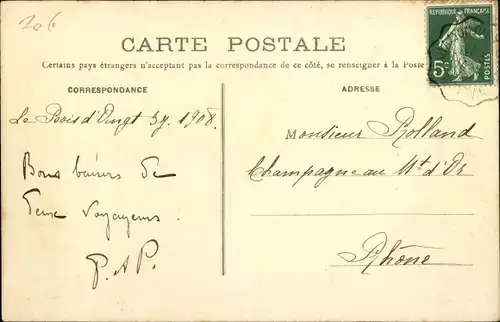 206
CARTE POSTALE
Certains pays étrangers n'acceptent pas la correspondance de ce côté, se renseigner à la Poste
REPUBLIQUE FRANÇAISE
5c
POSTES
CORRESPONDANCE
Le Bois d'Oingt 1908.
Bons baisers de
deux voyageurs.
P. A P.
ADRESSE
Monsieur Rolland
Champagne au Mt d'Or
Rhône